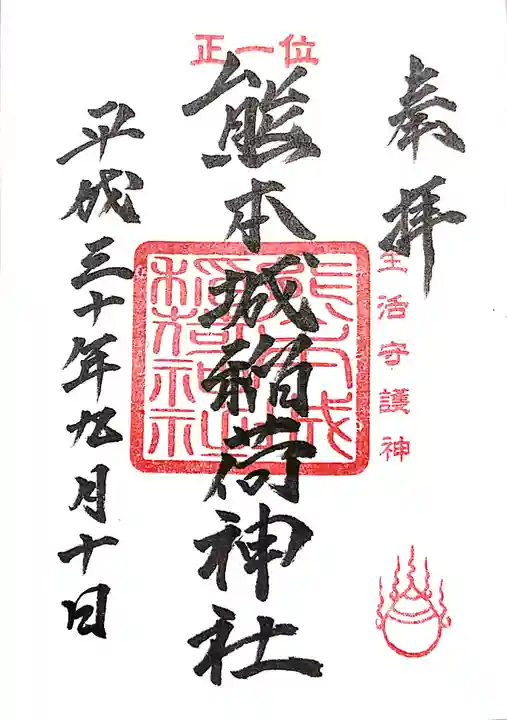 奉拝
生活守護神
正一位
熊本城稲荷神社
熊本城
稲荷神社
平成三十年九月十日